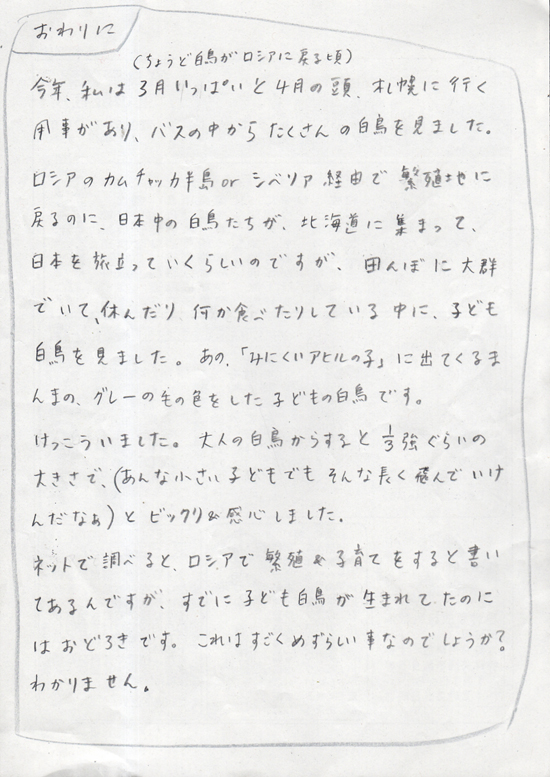 おわりに
(ちょうど白鳥がロシアに戻る頃)
今年、私は3月いっぱいと4月の頭、札幌に行く
用事があり、バスの中からたくさんの白鳥を見ました。
ロシアのカムチャッカ半島or シベリア経由で 繁殖地に
戻るのに、日本中の白鳥たちが、北海道に集まって、
日本を旅立っていくらしいのですが、田んぼに大群
でいて、休んだり 何か食べたりしている中に、子ども
白鳥を見ました。あの、「みにくいアヒルの子」に出てくるま
んまの、グレーの毛の色をした子どもの白鳥です。
けっこういました。大人の白鳥からすると1/3強ぐらいの
大きさで、(あんな小さい子どもでもそんな長く飛んでいけ
んだなぁ)とビックリ&感心しました。
ネットで調べると、ロシアで繁殖&子育てをすると書い
てあるんですが、すでに子ども白鳥が生まれてたのに
はおどろきです。これはすごくめずらしい事なのでしょうか?
わかりません。